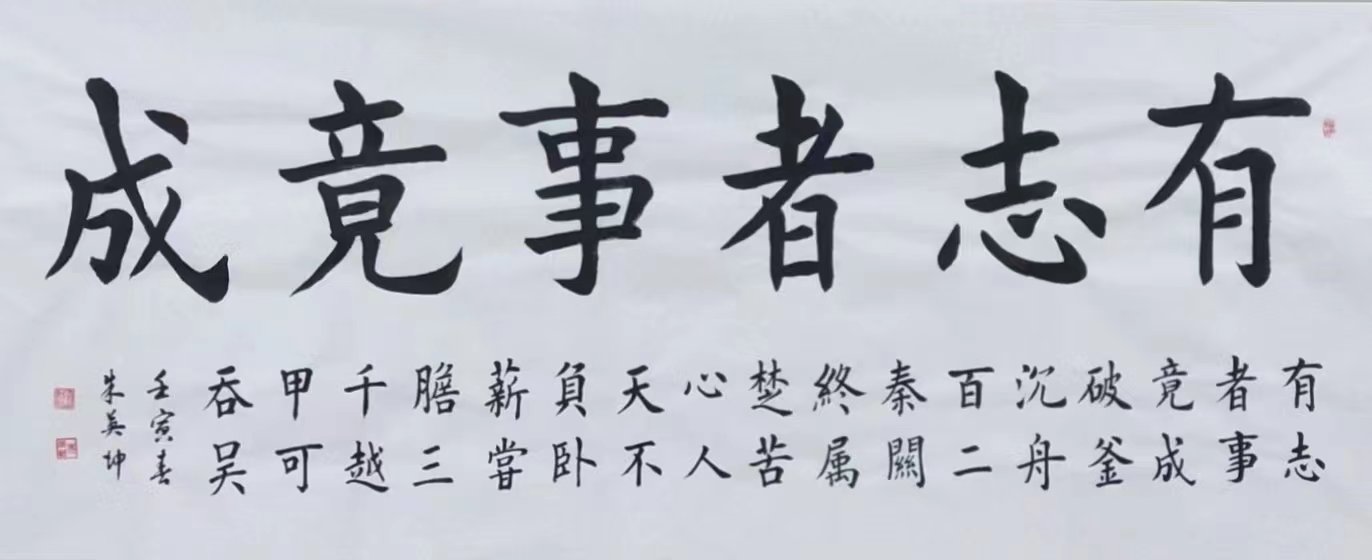 有志者事竟成
有志
者事
竟成
破釜
沉舟
百二
秦關
終属
楚苦
心人
天不
負卧
薪嘗
膽三
千越
甲可
吞吴
壬寅春
朱英坤